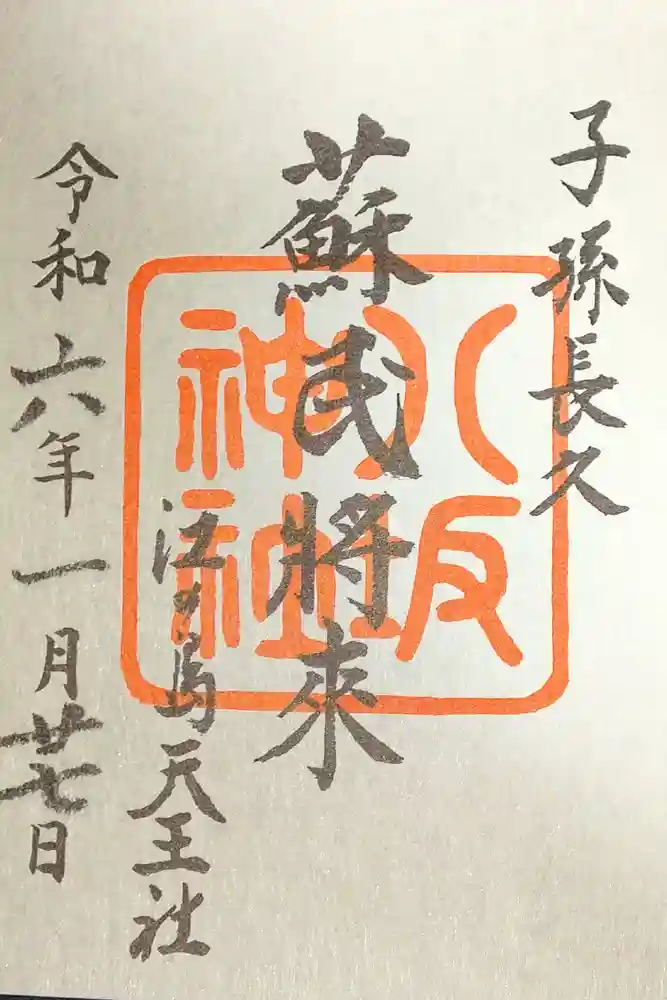 子孫長久
蘇民將来
江ノ島天王社
令和六年一月廿七日
八坂神社